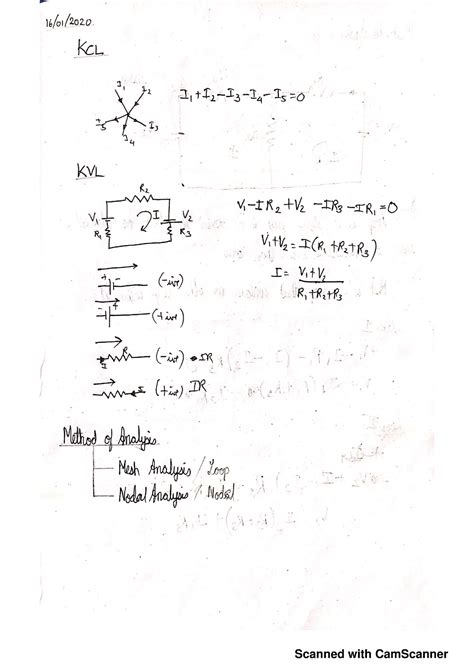 16/01/2020.
KCL
I₁ I₂ I₃ I₄ I₅
I₁+I₂-I₃-I₄-I₅=0
KVL
R₂
V₁ I V₂
R₁ R₃
V₁-IR₂+V₂-IR₃-IR₁=0
V₁+V₂=I(R₁+R₂+R₃)
I= V₁+V₂
R₁+R₂+R₃
+ - (-ive)
- + (+ive)
I R (-ive) IR
I (+ive) IR
Method of Analysis
Mesh Analysis / Loop
Nodal Analysis / Nodal
Scanned with CamScanner